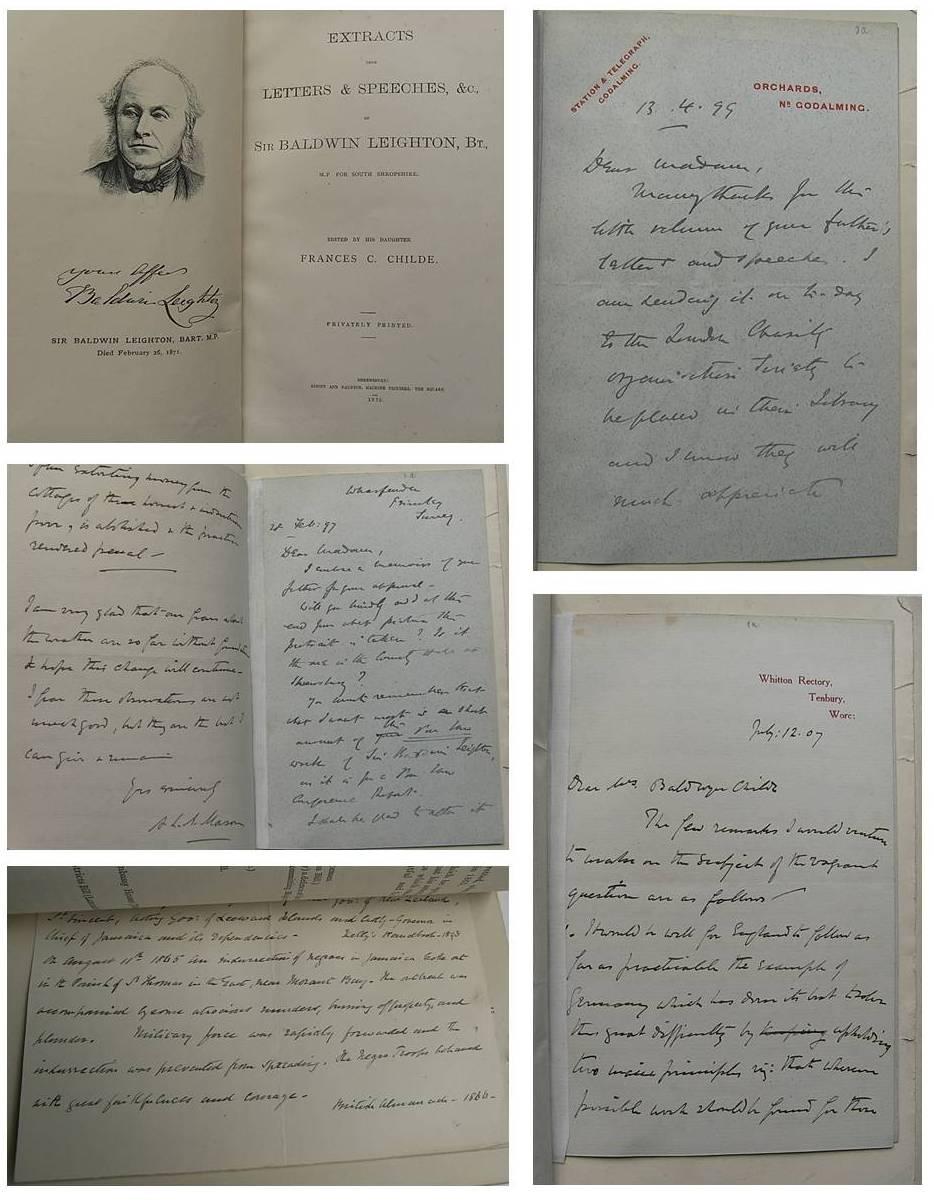 EXTRACTS
FROM
LETTERS & SPEECHES, &c.,
OF
SIR BALDWIN LEIGHTON, BT.,
M.P. FOR SOUTH SHROPSHIRE.
EDITED BY HIS DAUGHTER
FRANCES C. CHILDE.
PRIVATELY PRINTED.
SHREWSBURY:
THE SQUARE.
Baldwin Leighton
SIR BALDWIN LEIGHTON, BART. M.P.
Died February 26, 1871.
STATION & TELEGRAPH,
GODALMING.
ORCHARDS,
Nr GODALMING.
13.4.99
Dear Madam,
Many thanks for the
little volume of your father's
letters and speeches. I
am sending it on to-day
to the London Charity
Organisation Society to
be placed in their Library
and I know they will
much appreciate
cottages of these honest & industrious
poor, is abolished & the practice
rendered penal —
I am very glad that our fears about
the weather are so far without foundation
& hope this change will continue—
I fear these observations are not
much good, but they are the best I
can give & remain
Yrs sincerely
Frimley
Surrey.
Feb: 97
Dear Madam,
I enclose a memoir of your
father for your approval —
will you kindly add at the
end from what picture the
portrait is taken? Is it
the one in the County Hall at
Shrewsbury?
remember that
what I want most is a short
account of the Poor Law
work of Sir Baldwin Leighton,
as it is for a Poor Law
Conference Report.
I shall be glad to alter it
St Vincent, acting Govr of Leeward Islands and
Chief of Jamaica and its Dependencies—
On August 11th 1865 an insurrection of negroes in Jamaica broke out
in the Parish of St Thomas in the East, near Morant Bay. The outbreak was
accompanied by some atrocious murders, burning of property, and
plunder. Military force was rapidly forwarded and the
insurrection was prevented from spreading. The Negro Troops behaved
with great faithfulness and courage.
British Almanack — 1866—
Whitton Rectory,
Tenbury,
Worc:
July: 12. 07
Dear Mrs Baldwyn Childe
The few remarks I would venture
to make on the subject of the vagrant
question are as follows—
1. It would be well for England to follow as
far as practicable the example of
Germany which has done its best to solve
this great difficulty by upholding
two main principles viz: that wherever
possible work should be found for those